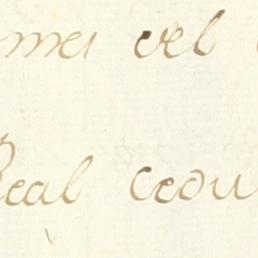 mei vel
Real cedu